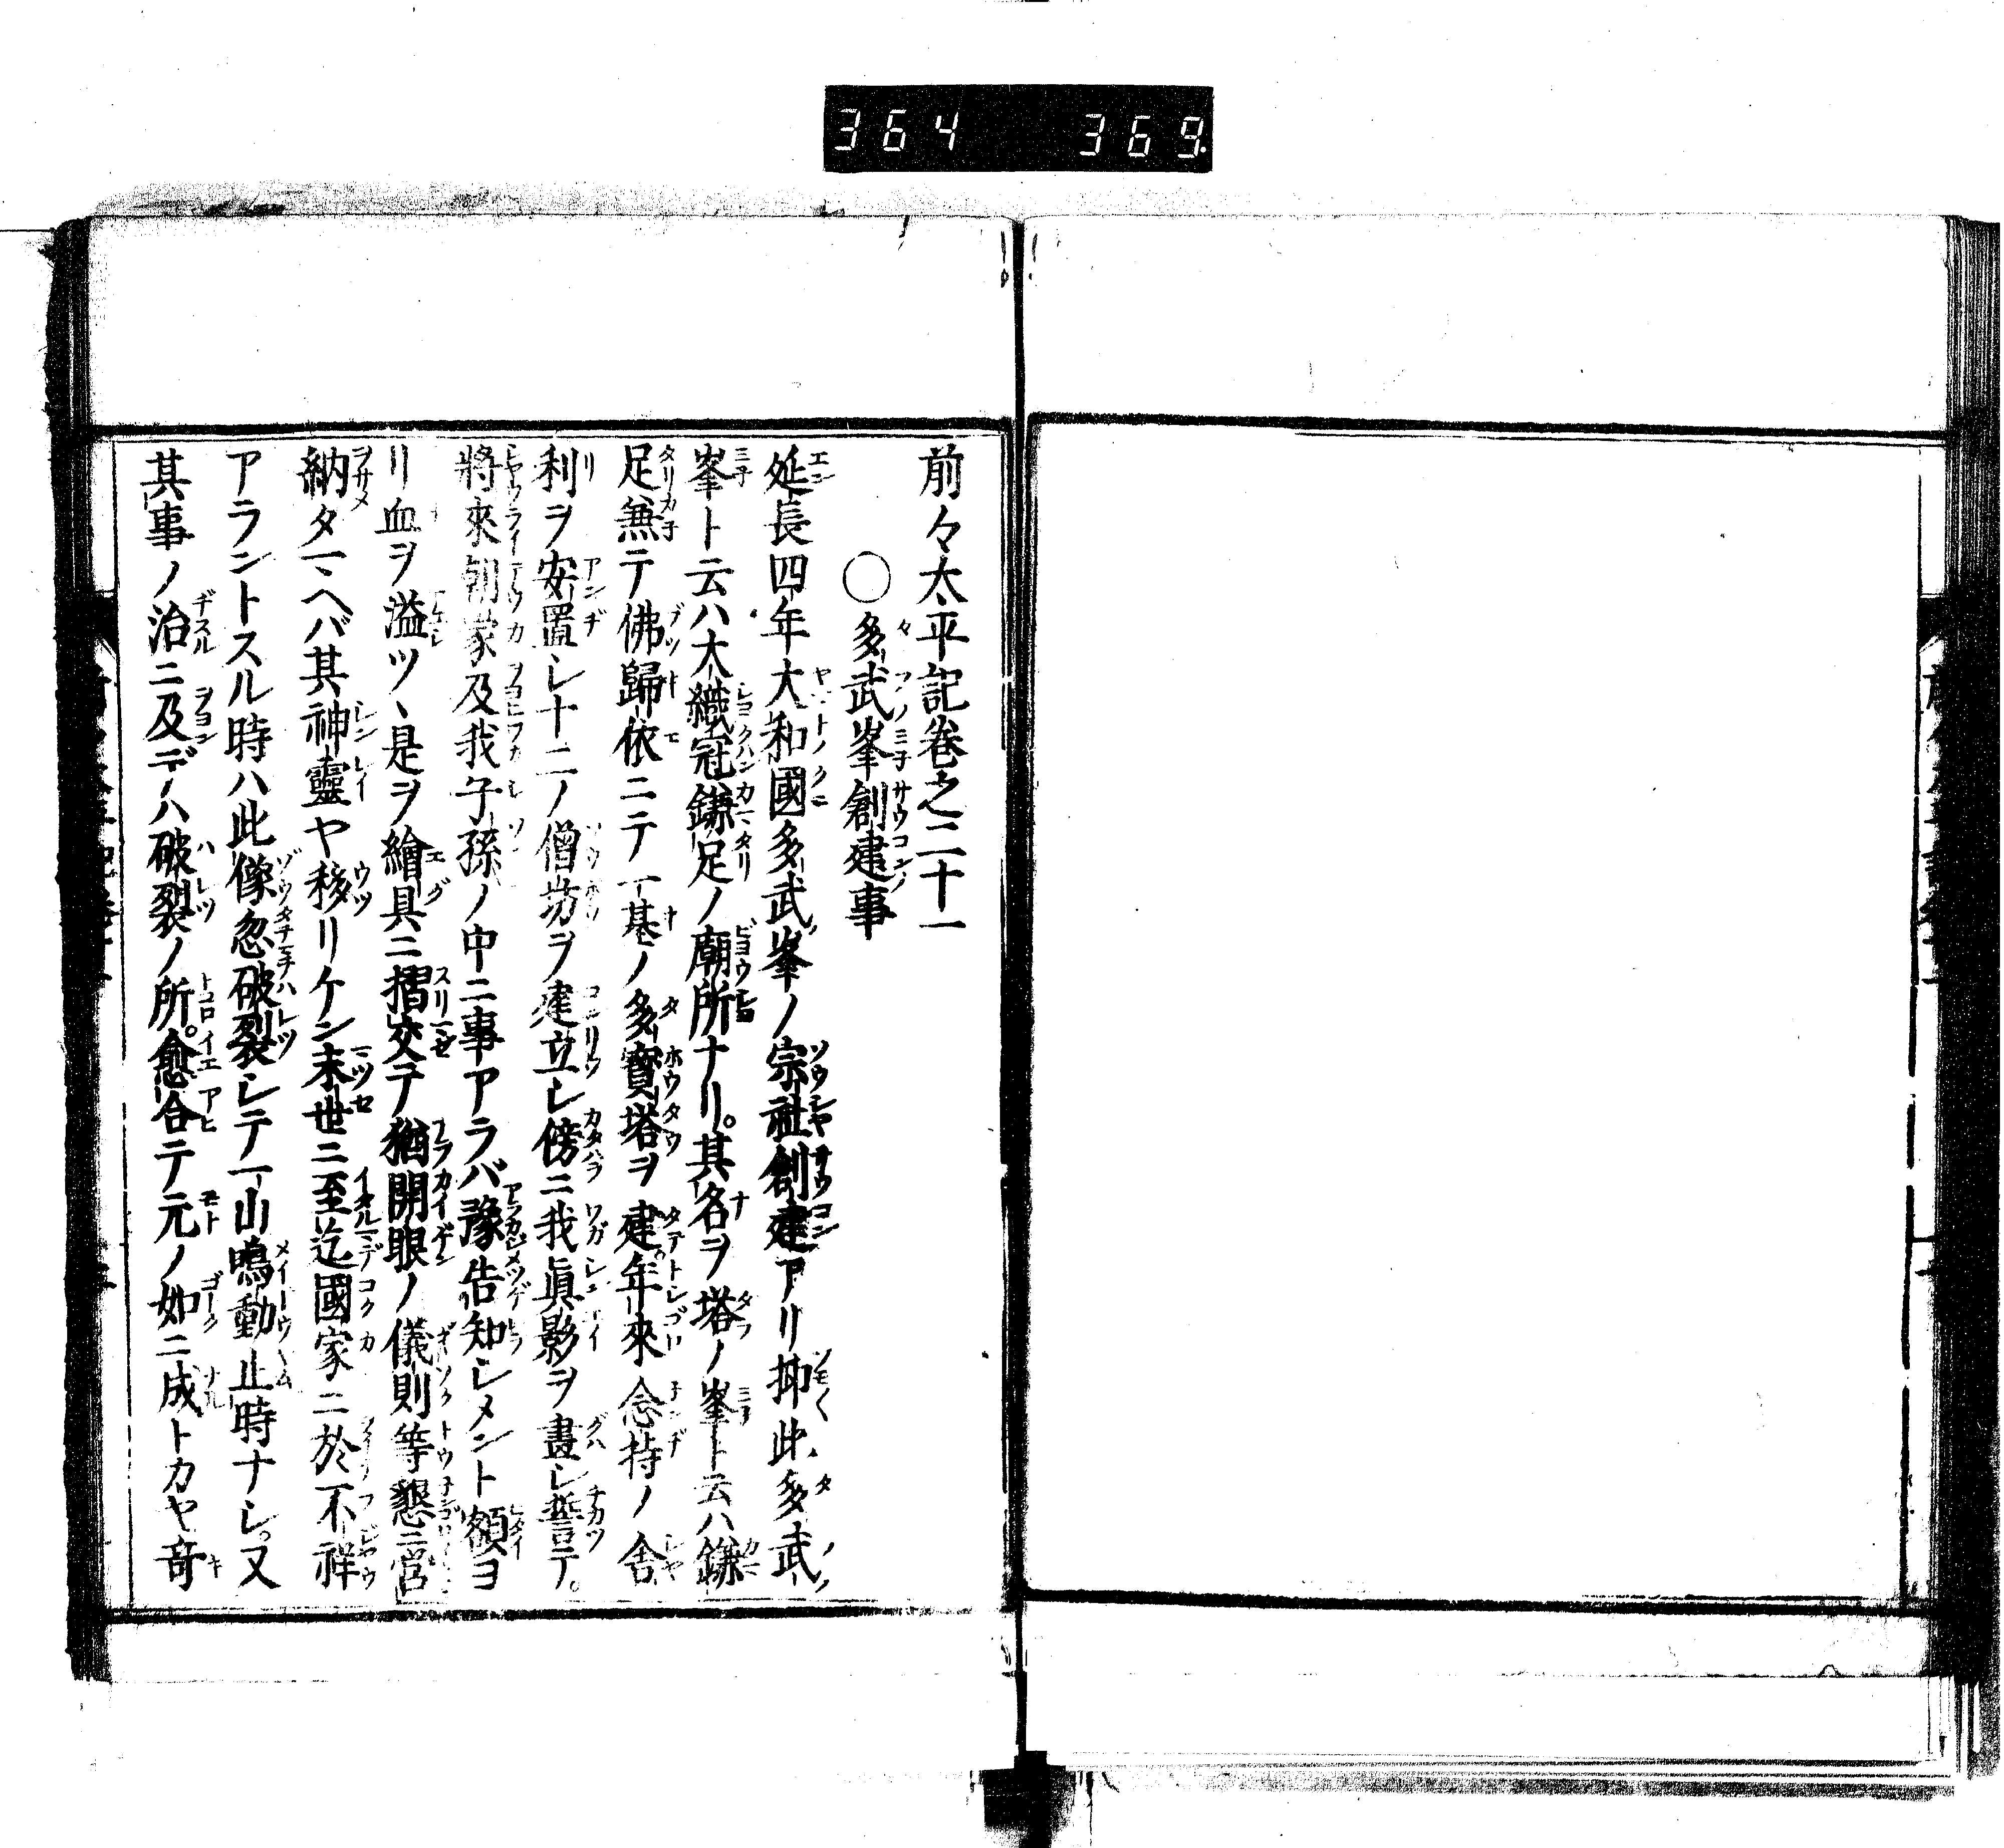 364 369
前々太平記卷之二十一
○多武峯創建事
延長四年大和國多武峯ノ宗社創建アリ抑此多武
峯ト云ハ大織冠鎌足ノ廟所ナリ。其名ヲ塔ノ峯ト云ハ鎌
足兼テ佛歸依ニテ一基ノ多寳塔ヲ建年來念持ノ舎
利ヲ安置シ十二ノ僧坊ヲ建立シ傍ニ我眞影ヲ畫シ誓テ。
將來朝家及我子孫ノ中ニ事アラバ豫告知シメント額ヨ
リ血ヲ溢ツヽ是ヲ繪具ニ摺交テ猶開眼ノ儀則等懇ニ営
納タマヘバ其神靈ヤ移リケン末世ニ至迄國家ニ於不祥
アラントスル時ハ此像忽破裂シテ一山鳴動止時ナシ。又
其事ノ治ニ及デハ破裂ノ所。愈合テ元ノ如ニ成トカヤ奇